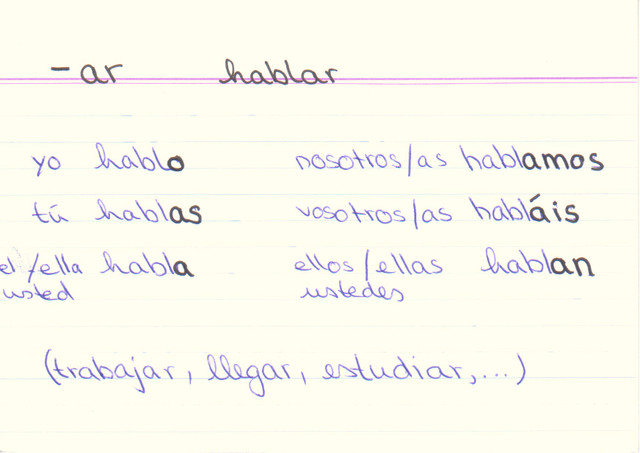 -ar hablar
yo hablo nosotros/as hablamos
tú hablas vosotros/as habláis
el/ella habla ellos/ellas hablan
usted ustedes
(trabajar, llegar, estudiar,...)